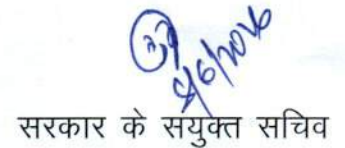 8/6/2026
सरकार के सयुक्त सचिव